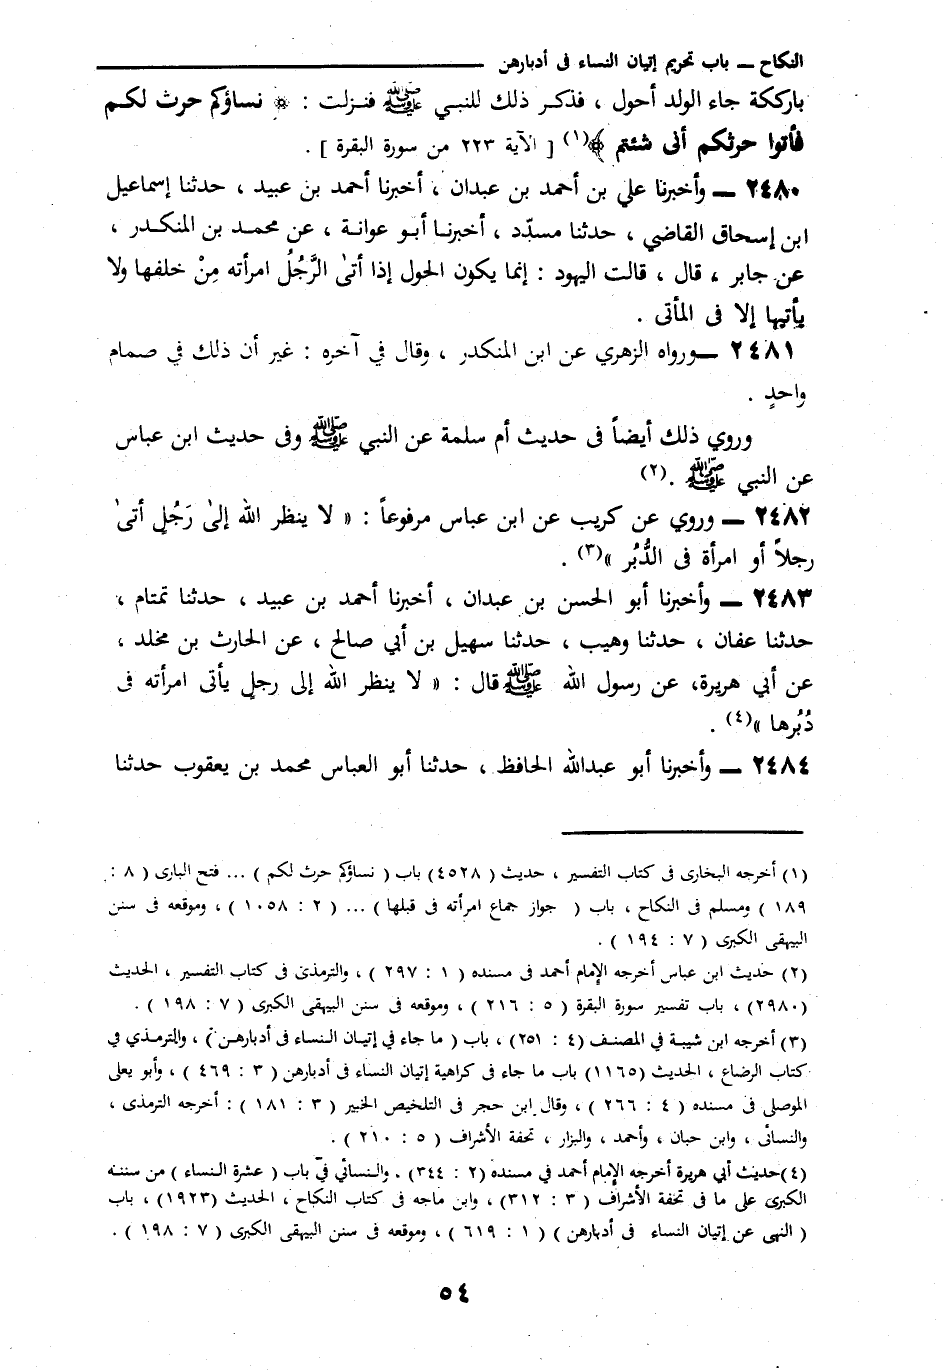 النكاح ــ باب تحريم إتيان النساء فى أدبارهن
باركة جاء الولد أحول ، فذكر ذلك للنبي ﷺ فنزلت : ﴿ نساؤكم حرث لكم
فأتوا حرثكم أنى شئتم ﴾(١) [ الآية ٢٢٣ من سورة البقرة ] .
٢٤٨٠ ــ وأخبرنا علي بن أحمد بن عبدان ، أخبرنا أحمد بن عبيد ، حدثنا إسماعيل
ابن إسحاق القاضي ، حدثنا مسدّد ، أخبرنا أبو عوانة ، عن محمد بن المنكدر ،
عن جابر ، قال ، قالت اليهود : إنما يكون الحول إذا أتىٰ الرَّجُلُ امرأته مِنْ خلفها ولا
يأتيها إلا فى المأتى .
٢٤٨١ ــ ورواه الزهري عن ابن المنكدر ، وقال في آخره : غير أن ذلك في صمام
واحدٍ .
وروي ذلك أيضاً فى حديث أم سلمة عن النبي ﷺ وفى حديث ابن عباس
عن النبي ﷺ .(٢)
٢٤٨٢ ــ وروي عن كريب عن ابن عباس مرفوعاً : « لا ينظر الله إلىٰ رَجُلٍ أتىٰ
رجلاً أو امرأة فى الدُّبُر »(٣) .
٢٤٨٣ ــ وأخبرنا أبو الحسن بن عبدان ، أخبرنا أحمد بن عبيد ، حدثنا تمتام ،
حدثنا عفان ، حدثنا وهيب ، حدثنا سهيل بن أبي صالح ، عن الحارث بن مخلد ،
عن أبي هريرة، عن رسول الله ﷺ قال : « لا ينظر الله إلى رجلٍ يأتى امرأته فى
دُبُرها »(٤) .
٢٤٨٤ ــ وأخبرنا أبو عبدالله الحافظ ، حدثنا أبو العباس محمد بن يعقوب حدثنا
(١) أخرجه البخارى فى كتاب التفسير ، حديث ( ٤٥٢٨) باب ( نساؤكم حرث لكم ) ... فتح البارى ( ٨ :
١٨٩ ) ومسلم فى النكاح ، باب ( جواز جماع امرأته فى قبلها ) ... ( ٢ : ١٠٥٨ ) ، وموقعه فى سنن
البيهقى الكبرى ( ٧ : ١٩٤ ) .
(٢) حديث ابن عباس أخرجه الإمام أحمد فى مسنده ( ١ : ٢٩٧ ) ، والترمذى فى كتاب التفسير ، الحديث
(٢٩٨٠) ، باب تفسير سورة البقرة ( ٥ : ٢١٦ ) ، وموقعه فى سنن البيهقى الكبرى ( ٧ : ١٩٨ ) .
(٣) أخرجه ابن شيبة في المصنف (٤ : ٢٥١) ، باب ( ما جاء في إتيان النساء فى أدبارهن ) ، والترمذي في
كتاب الرضاع ، الحديث (١١٦٥) باب ما جاء فى كراهية إتيان النساء فى أدبارهن ( ٣ : ٤٦٩ ) ، وأبو يعلى
الموصلى فى مسنده ( ٤ : ٢٦٦ ) ، وقال ابن حجر فى التلخيص الخبير ( ٣ : ١٨١ ) : أخرجه الترمذى ،
والنسائى ، وابن حبان ، وأحمد ، والبزار ، تحفة الأشراف ( ٥ : ٢١٠ ) .
(٤) حديث أبي هريرة أخرجه الإمام أحمد في مسنده (٢ : ٣٤٤) . والنسائي في باب ( عشرة النساء ) من سننه
الكبرى على ما فى تحفة الأشراف ( ٣ : ٣١٢ ) ، وابن ماجه فى كتاب النكاح ، الحديث (١٩٢٣) ، باب
( النهى عن إتيان النساء فى أدبارهن ) ( ١ : ٦١٩ ) ، وموقعه فى سنن البيهقى الكبرى ( ٧ : ١٩٨ ) .
٥٤